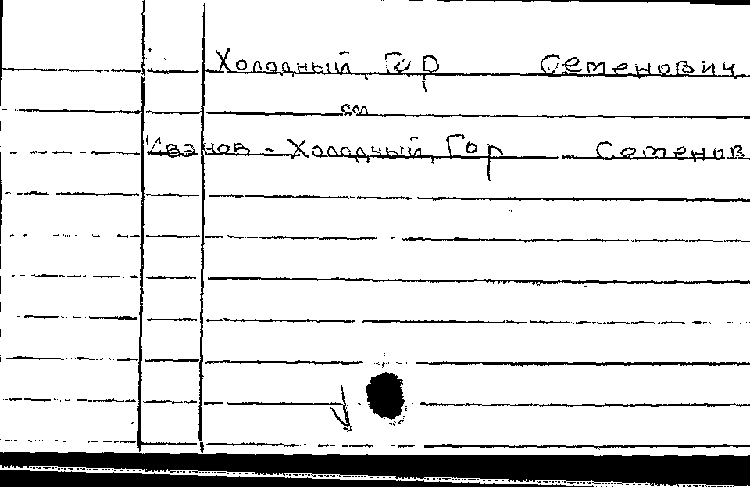 Холодный, Гор Семенович
см
Иванов-Холодный, Гор Семенов